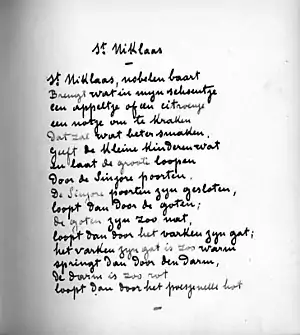 St Niklaas
St Niklaas, nobelen baart
Brengt wat in myn schoentje
een appeltje of een citroentje
een notje om te kraken
Dat zal wat beter smaken.
Geeft de kleine kinderen wat
en laat de groote loopen
Door de Sinjore poorten.
De Sinjore poorten zyn gesloten,
loopt dan door de goten;
de goten zyn zoo nat,
loopt dan door het varken zyn gat;
het varken zyn gat is zoo warm
springt dan door den darm,
de darm is zoo rot
loopt dan door het poesjenelle kot